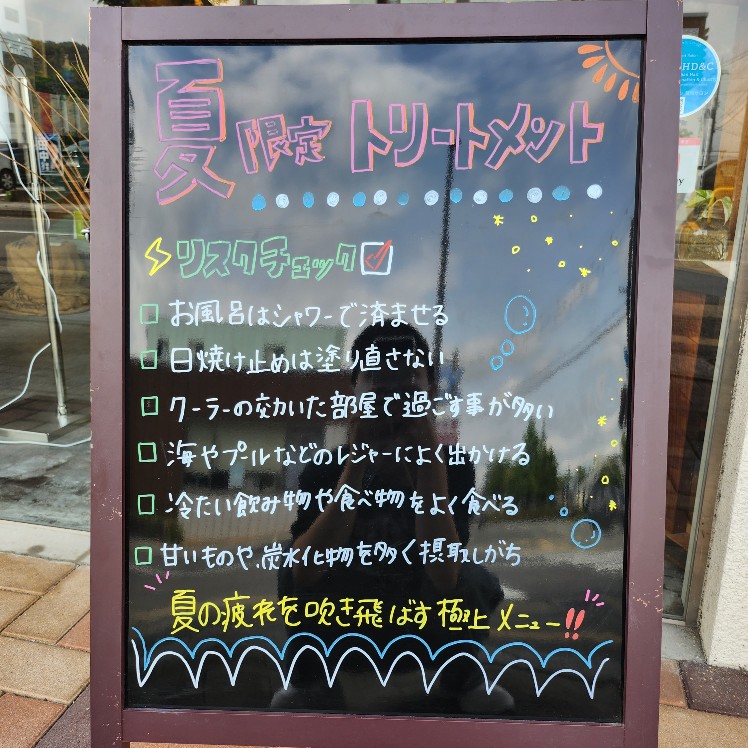 夏 限定 トリートメント
リスクチェック
お風呂はシャワーで済ませる
日焼け止めは塗り直さない
クーラーの効いた部屋で過ごす事が多い
海やプールなどのレジャーによく出かける
冷たい飲み物や食べ物をよく食べる
甘いものや、炭水化物を多く摂取しがち
夏の疲れを吹き飛ばす極上メニュー!!